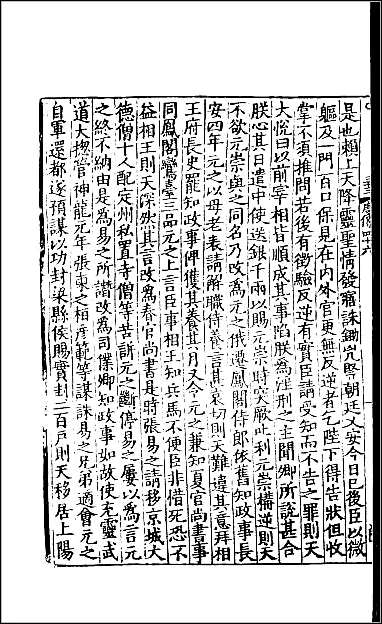 是也賴上天降靈聖情發寤誅鋤兇竪朝廷乂安今日已後臣以微
軀及一門百口保見在內外官更無反逆者乞陛下得告狀但收
掌不須推問若後有徵驗反逆有實臣請受知而不告之罪則天
大悅曰以前宰相皆順成其事陷朕為淫刑之主聞卿所說甚合
朕心其日遣中使送銀千兩以賜元崇時突厥叱利元崇構逆則天
不欲元崇與之同名乃改為元之俄遷鳳閣侍郎依舊知政事長
安四年元之以母老表請解職侍養言甚哀切則天難違其意拜相
王府長史罷知政事俾獲其養其月又令元之兼知夏官尚書事
同鳳閣鸞臺三品元之上言臣事相王知兵馬不便臣非惜死恐不
益相王則天深然其言改為春官尚書是時張易之請移京城大
德僧十人配定州私置寺僧等苦訴元之斷停易之屢以為言元
之終不納由是為易之所譖改為司僕卿知政事如故使充靈武
道大揔管神龍元年張柬之桓彥範等謀誅易之兄弟適會元之
自軍還都遂預謀以功封梁縣侯賜實封二百戶則天移居上陽